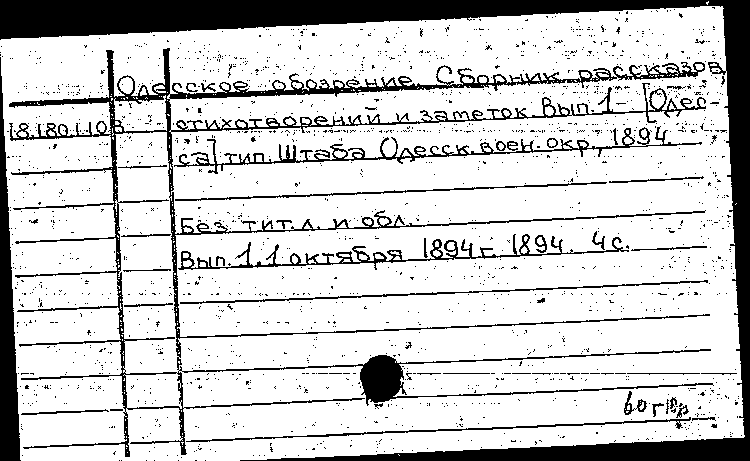 Одесское обозрение. Сборник рассказов,
18.180.1.108 стихотворений и заметок. Вып. 1- [Одес-
са], тип. Штаба Одесск. воен. окр., 1894.
Без тит. л. и обл.
Вып. 1. 1 октября 1894 г. 1894. 4 с.